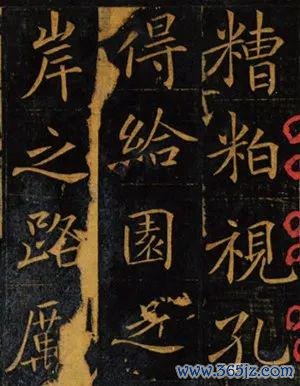 糟粕視孔
得給園之
岸之路厲
www.365jz.com